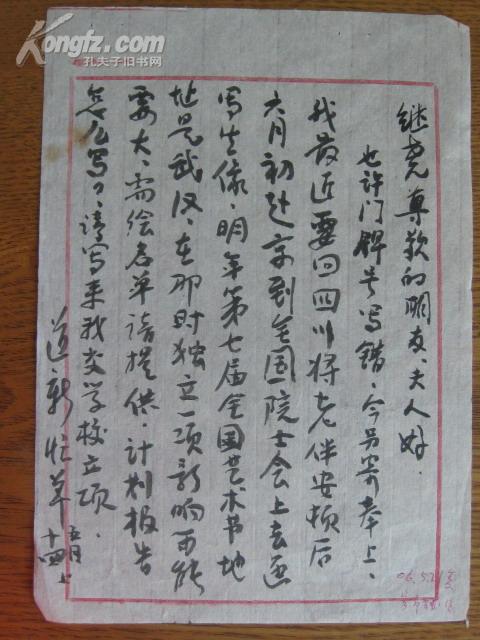 Kongfz.com
孔夫子旧书网
继尧尊敬的朋友、夫人好.
也许门牌号写错,今另寄奉上、
我最近要回四川将老伴安顿后
六月初赴京到全国院士会上去画
写生像,明年第七届全国艺术节地
址是武汉、在那时独立一项影响可能
要大、需绘名单请提供.计划报告
怎么写?请写来我交学校立项.
道新忙草
五月
十四上
06.5.21